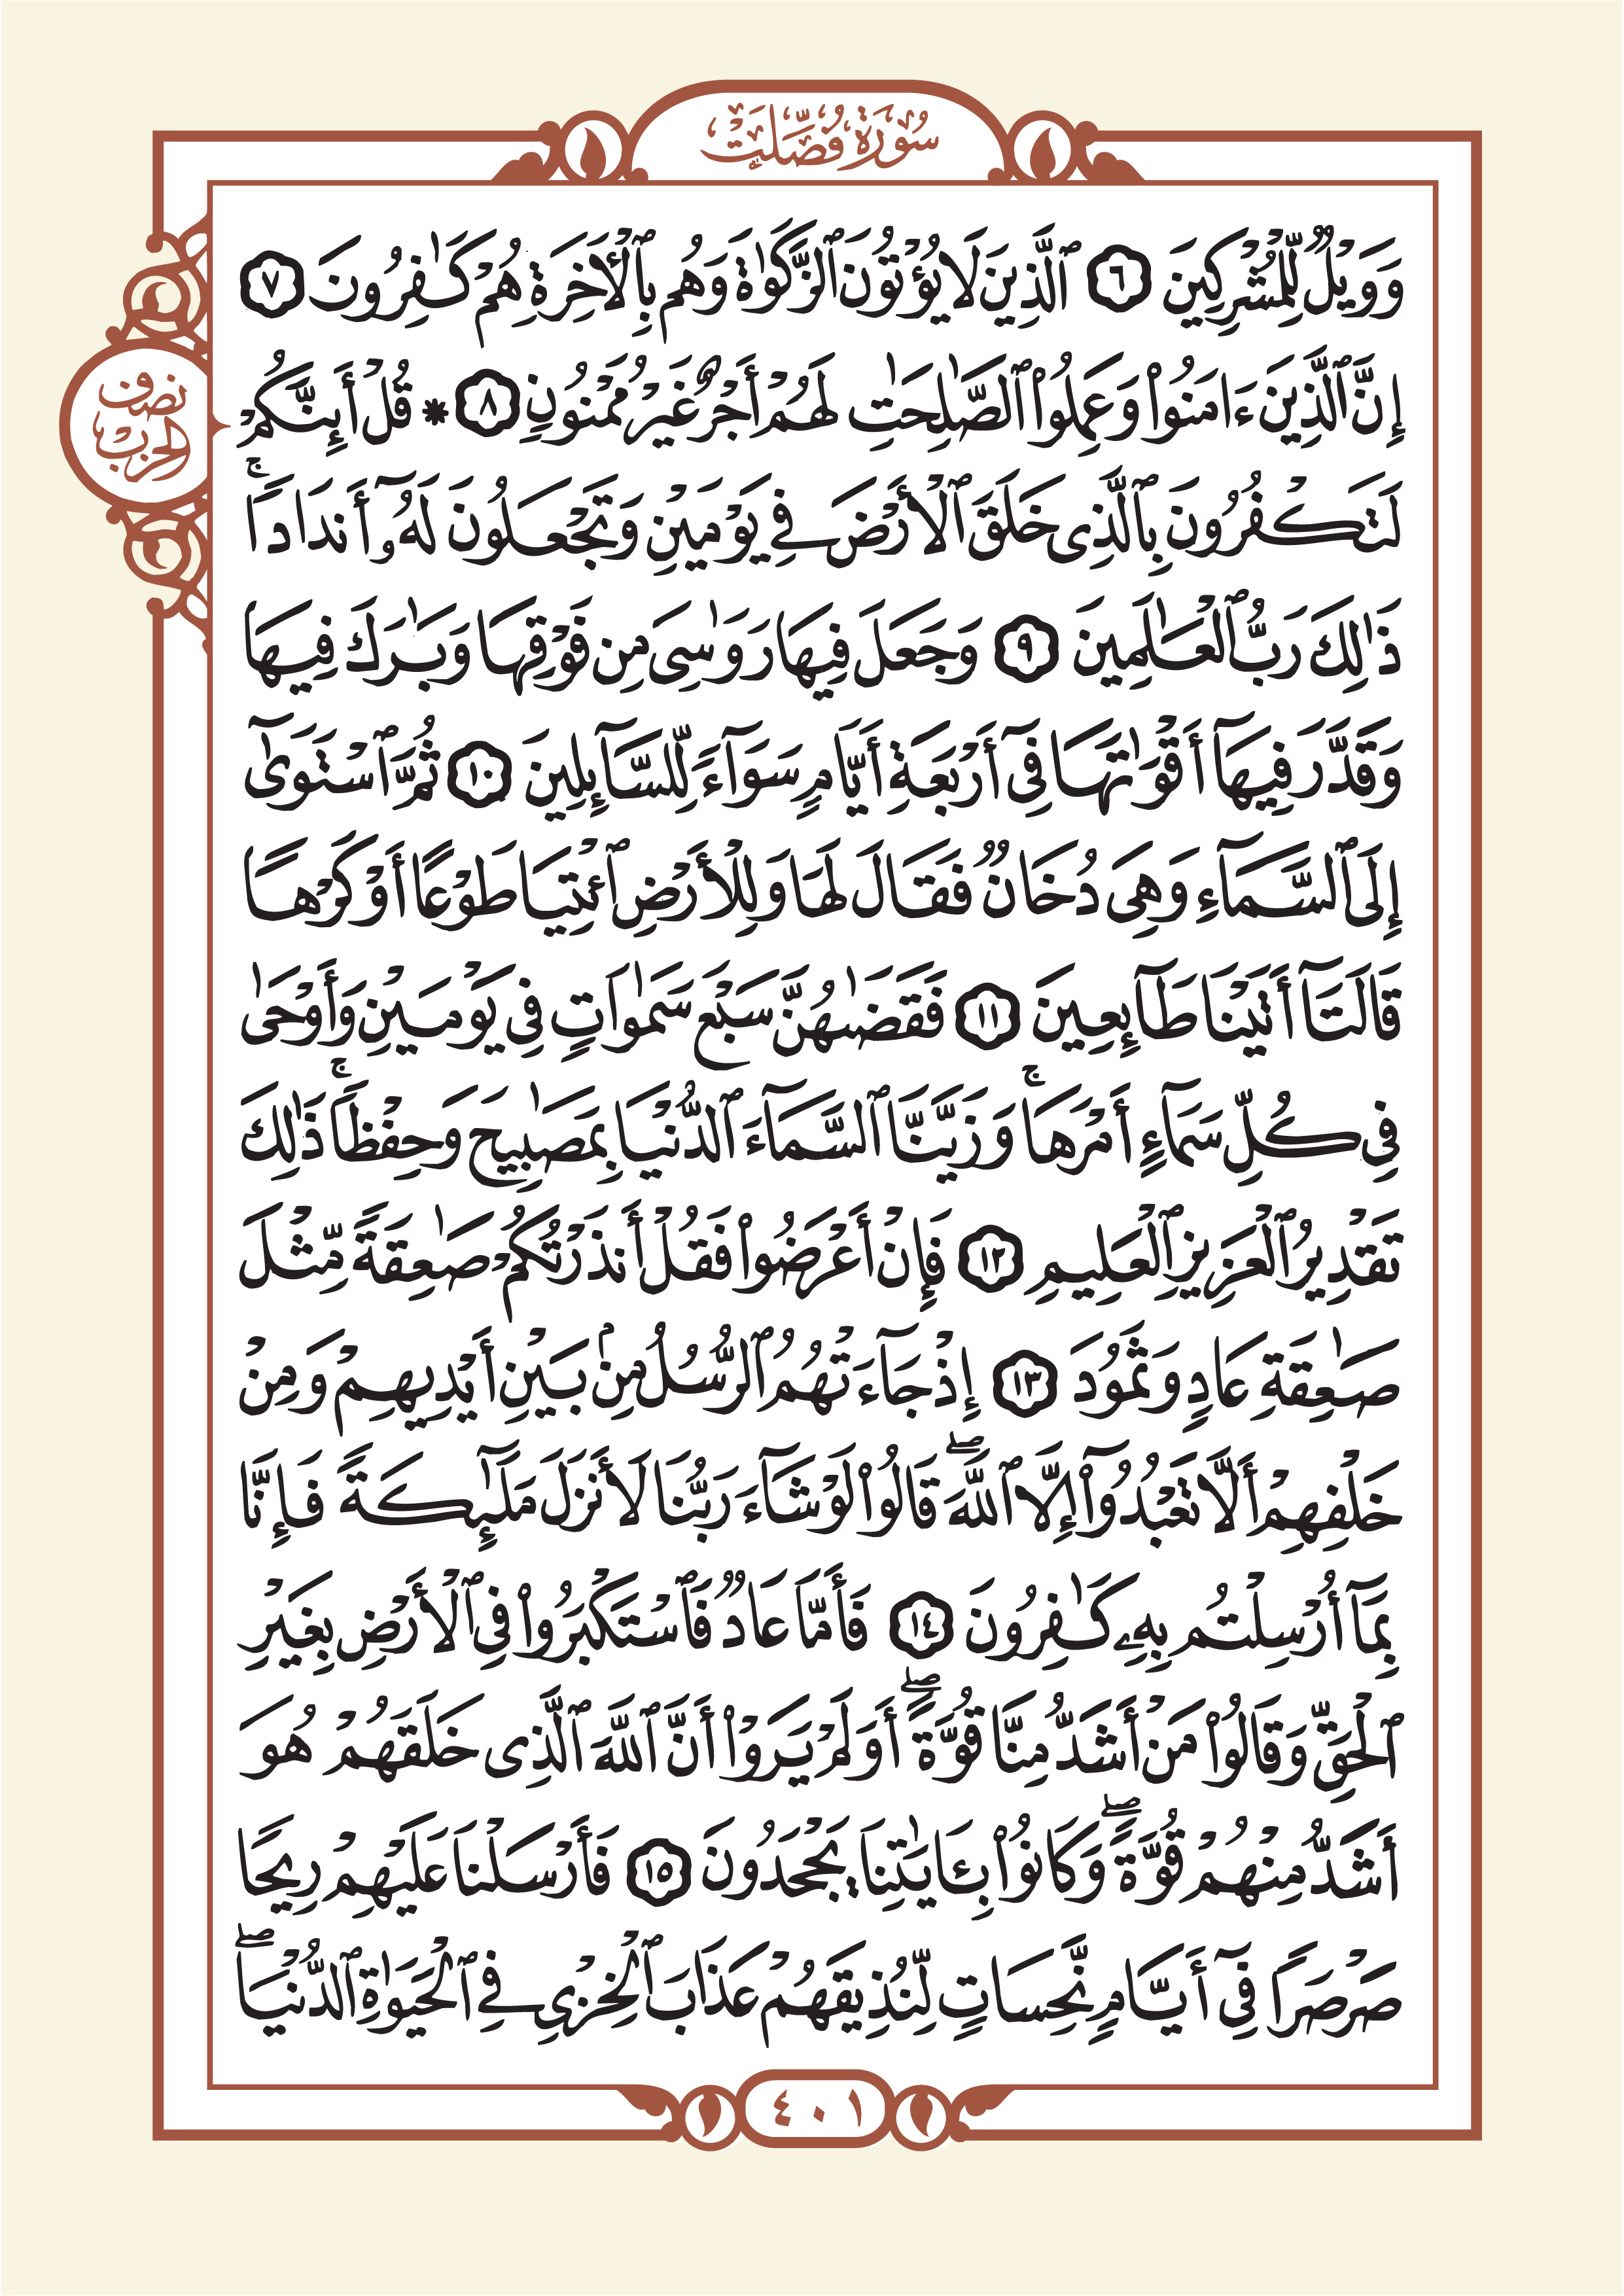 سُورَةُ فُصِّلَتْ
وَوَيْلٌ لِّلْمُشْرِكِينَ ٦ ٱلَّذِينَ لَا يُؤْتُونَ ٱلزَّكَوٰةَ وَهُم بِٱلْأَخِرَةِ هُمْ كَٰفِرُونَ ٧
إِنَّ ٱلَّذِينَ ءَامَنُوا۟ وَعَمِلُوا۟ ٱلصَّٰلِحَٰتِ لَهُمْ أَجْرٌ غَيْرُ مَمْنُونٍ ٨ * قُلْ أَئِنَّكُمْ
نصف الحزب
لَتَكْفُرُونَ بِٱلَّذِى خَلَقَ ٱلْأَرْضَ فِي يَوْمَيْنِ وَتَجْعَلُونَ لَهُۥٓ أَندَادًا ۚ
ذَٰلِكَ رَبُّ ٱلْعَٰلَمِينَ ٩ وَجَعَلَ فِيهَا رَوَٰسِىَ مِن فَوْقِهَا وَبَٰرَكَ فِيهَا
وَقَدَّرَ فِيهَآ أَقْوَٰتَهَا فِىٓ أَرْبَعَةِ أَيَّامٍ سَوَآءً لِّلسَّآئِلِينَ ١٠ ثُمَّ ٱسْتَوَىٰٓ
إِلَى ٱلسَّمَآءِ وَهِىَ دُخَانٌ فَقَالَ لَهَا وَلِلْأَرْضِ ٱئْتِيَا طَوْعًا أَوْ كَرْهًا
قَالَتَآ أَتَيْنَا طَآئِعِينَ ١١ فَقَضَىٰهُنَّ سَبْعَ سَمَٰوَاتٍ فِي يَوْمَيْنِ وَأَوْحَىٰ
فِي كُلِّ سَمَآءٍ أَمْرَهَا ۚ وَزَيَّنَّا ٱلسَّمَآءَ ٱلدُّنْيَا بِمَصَٰبِيحَ وَحِفْظًا ۚ ذَٰلِكَ
تَقْدِيرُ ٱلْعَزِيزِ ٱلْعَلِيمِ ١٢ فَإِنْ أَعْرَضُوا۟ فَقُلْ أَنذَرْتُكُمْ صَٰعِقَةً مِّثْلَ
صَٰعِقَةِ عَادٍ وَثَمُودَ ١٣ إِذْ جَآءَتْهُمُ ٱلرُّسُلُ مِنۢ بَيْنِ أَيْدِيهِمْ وَمِنْ
خَلْفِهِمْ أَلَّا تَعْبُدُوٓا۟ إِلَّا ٱللَّهَ ۖ قَالُوا۟ لَوْ شَآءَ رَبُّنَا لَأَنزَلَ مَلَٰٓئِكَةً فَإِنَّا
بِمَآ أُرْسِلْتُم بِهِۦ كَٰفِرُونَ ١٤ فَأَمَّا عَادٌ فَٱسْتَكْبَرُوا۟ فِي ٱلْأَرْضِ بِغَيْرِ
ٱلْحَقِّ وَقَالُوا۟ مَنْ أَشَدُّ مِنَّا قُوَّةً ۖ أَوَلَمْ يَرَوْا۟ أَنَّ ٱللَّهَ ٱلَّذِى خَلَقَهُمْ هُوَ
أَشَدُّ مِنْهُمْ قُوَّةً ۖ وَكَانُوا۟ بِـَٔايَٰتِنَا يَجْحَدُونَ ١٥ فَأَرْسَلْنَا عَلَيْهِمْ رِيحًا
صَرْصَرًا فِىٓ أَيَّامٍ نَّحِسَاتٍ لِّنُذِيقَهُمْ عَذَابَ ٱلْخِزْىِ فِي ٱلْحَيَوٰةِ ٱلدُّنْيَا ۖ
٤٠١